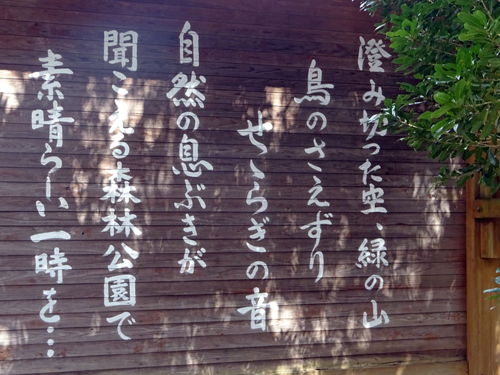 澄み切った空、緑の山
鳥のさえずり
せゝらぎの音
自然の息ぶきが
聞こえる森林公園で
素晴らしい一時を…